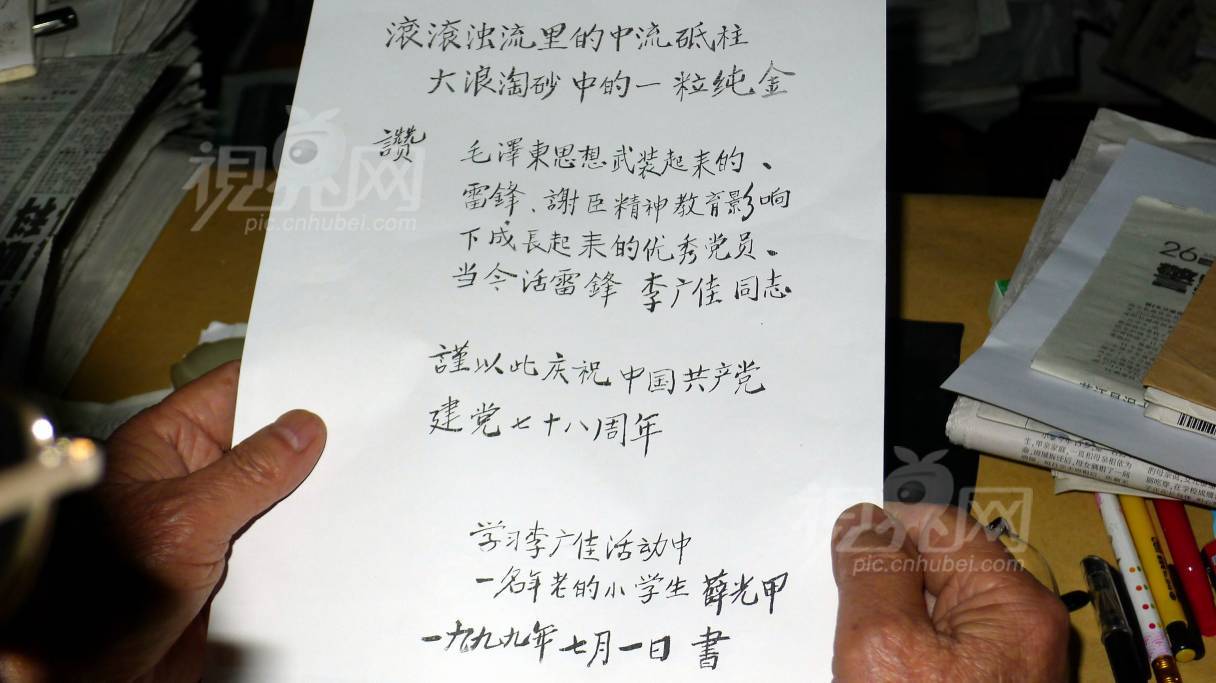 滚滚浊流里的中流砥柱
大浪淘砂中的一粒纯金
讚 毛澤東思想武装起来的、
雷鋒、謝臣精神教育影响
下成長起来的优秀党员、
当今活雷鋒 李广佳同志
謹以此庆祝中国共产党
建党七十八周年
学习李广佳活动中
一名年老的小学生 薛光甲
一九九九年七月一日 書
視界网
pic.cnhubei.com
視界网
pic.cnhubei.com
26